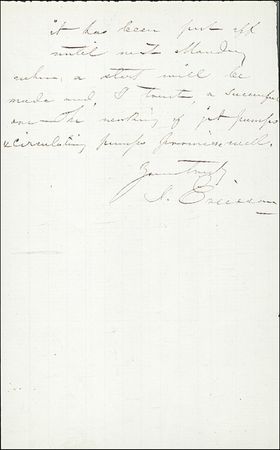 it has been put off
until next Monday
when, a start will be
made and, I trust, a successful
one— The working of jet pumps
& circulating pumps promises well.
Yours truly
J. Ericsson